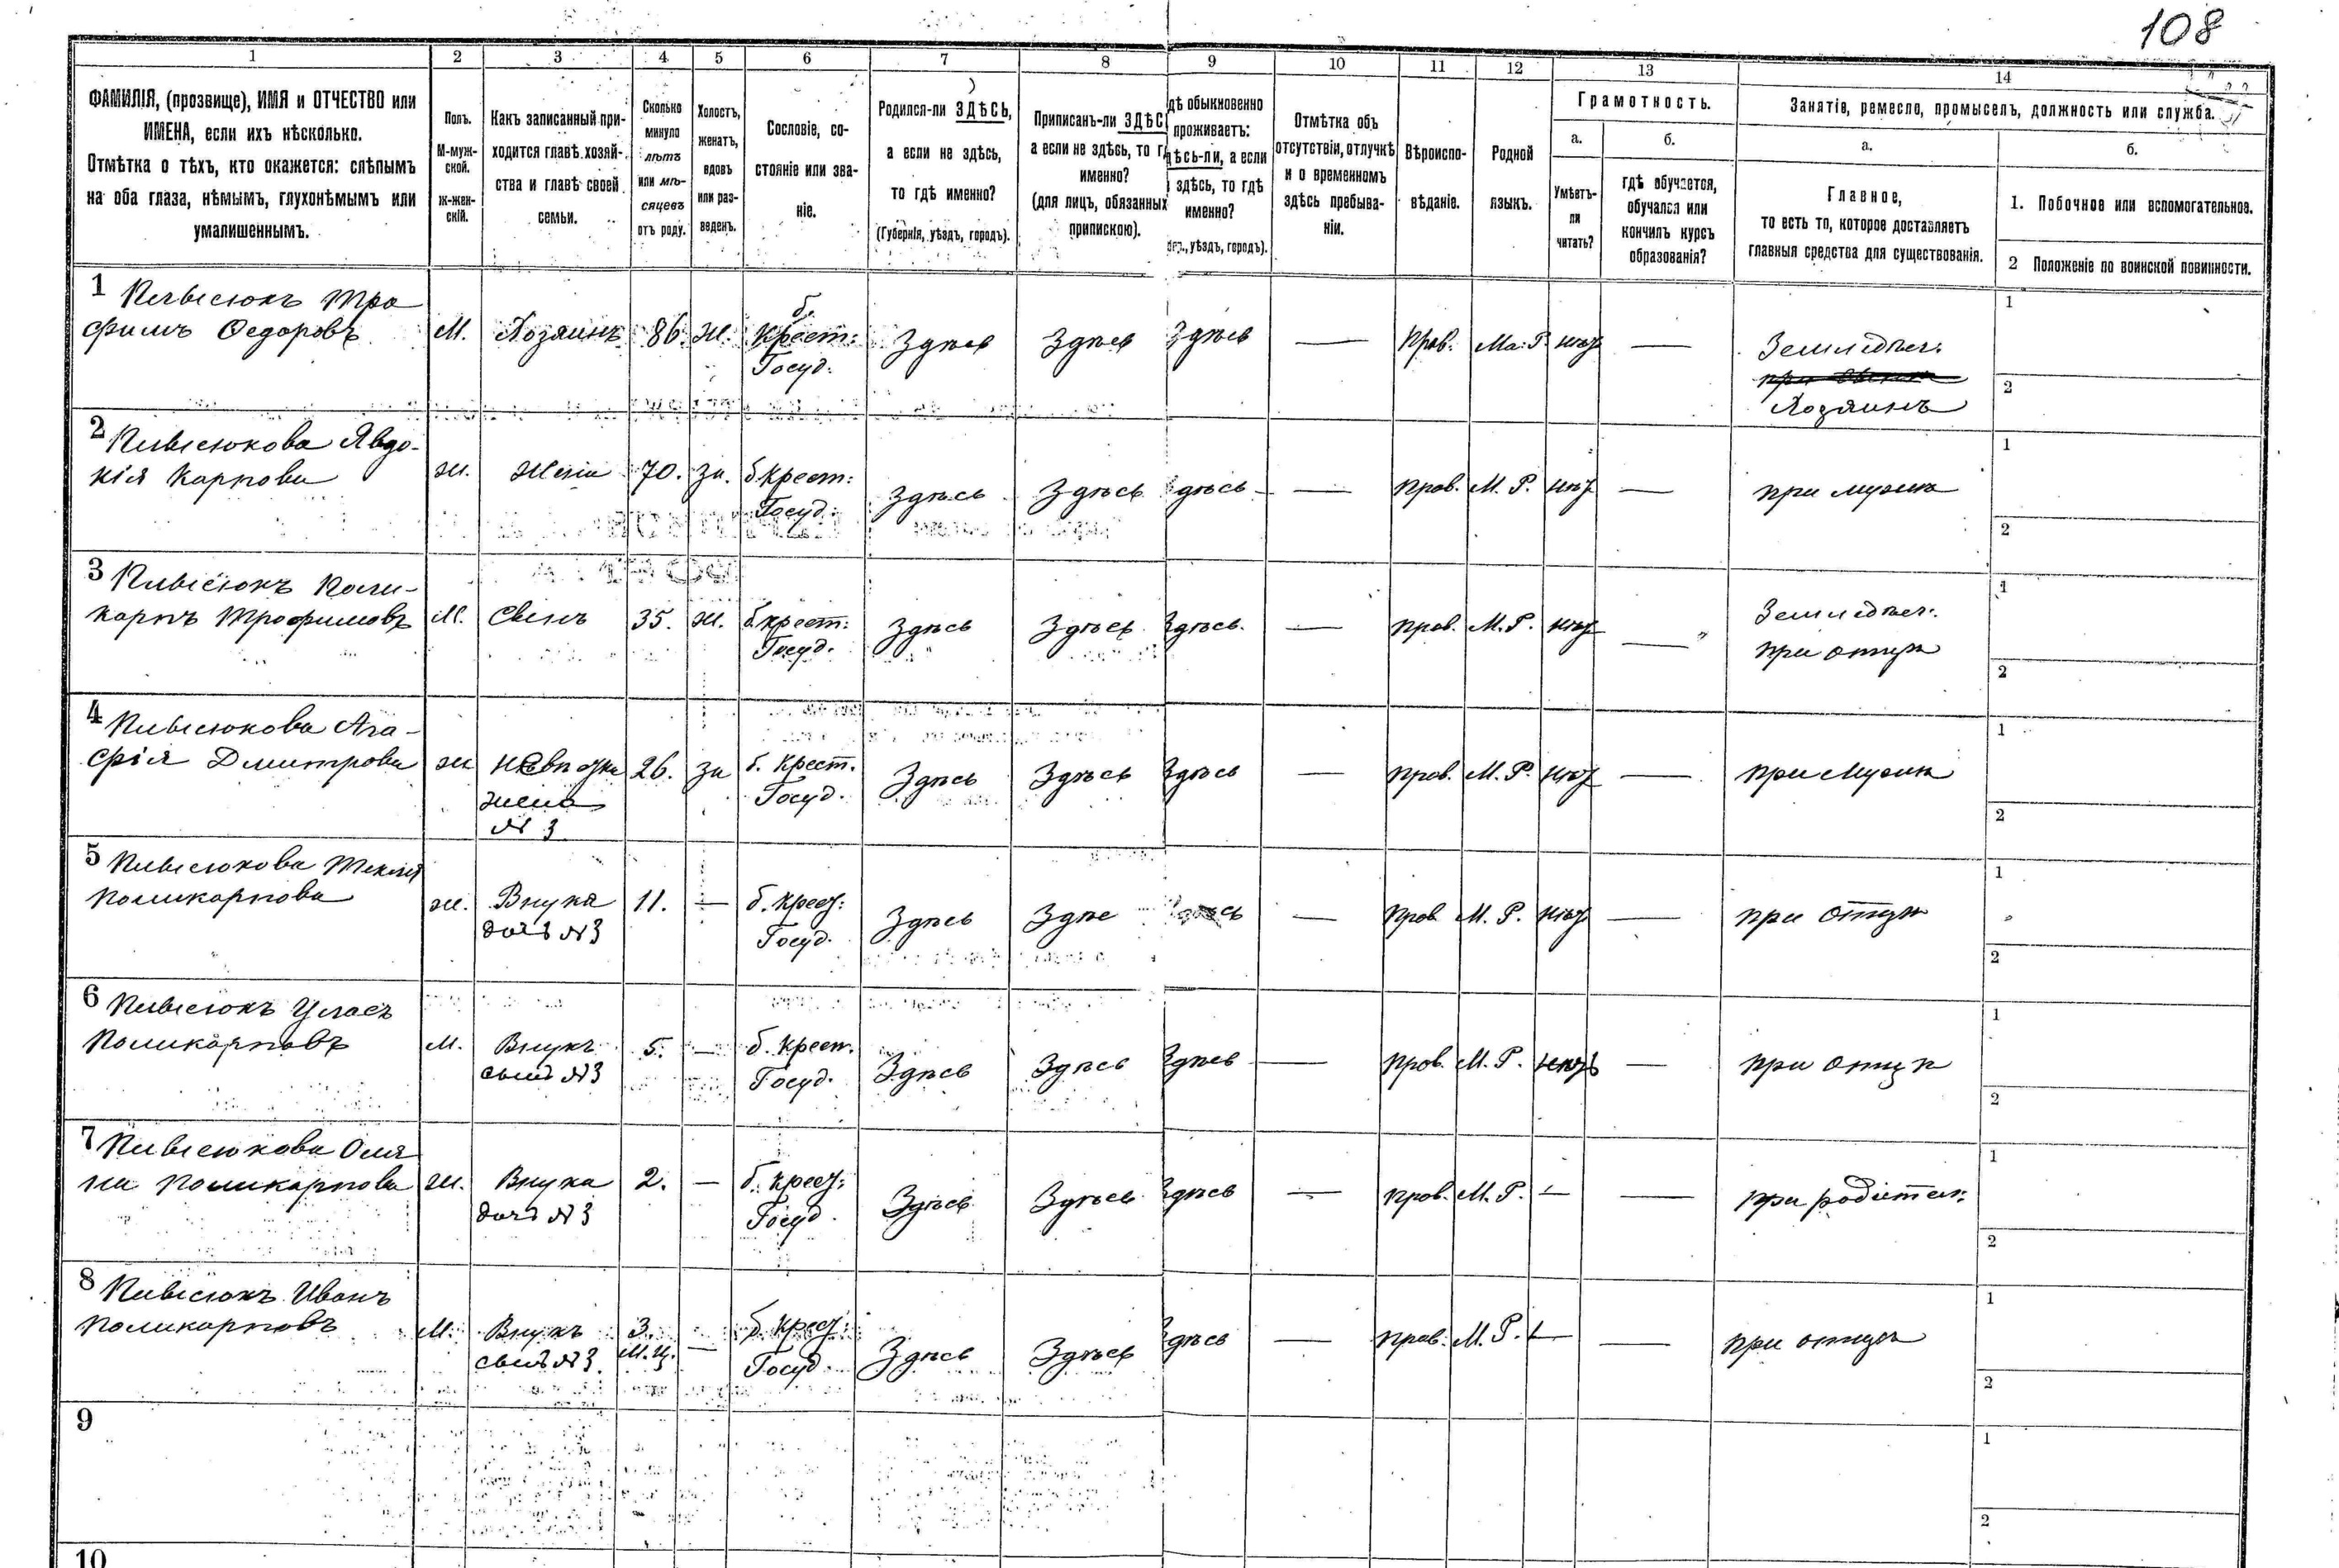 108
1 2 3 4 5 6 7 8 9 10 11 12 13 14
ФАМИЛІЯ, (прозвище), ИМЯ и ОТЧЕСТВО или
ИМЕНА, если ихъ нѣсколько.
Отмѣтка о тѣхъ, кто окажется: слѣпымъ
на оба глаза, нѣмымъ, глухонѣмымъ или
умалишеннымъ.
Полъ.
М-муж-
ской.
ж-жен-
скій.
Какъ записанный при-
ходится главѣ хозяй-
ства и главѣ своей
семьи.
Сколько
минуло
лѣтъ
или мѣ-
сяцевъ
отъ роду.
Холостъ,
женатъ,
вдовъ
или раз-
веденъ.
Сословіе, со-
стояніе или зва-
ніе.
Родился-ли ЗДѢСЬ,
а если не здѣсь,
то гдѣ именно?
(Губернія, уѣздъ, городъ).
Приписанъ-ли ЗДѢС
а если не здѣсь, то г
именно?
(для лицъ, обязанныхъ
припискою).
дѣ обыкновенно
проживаетъ:
дѣсь-ли, а если
здѣсь, то гдѣ
именно?
уѣздъ, городъ).
Отмѣтка объ
отсутствіи, отлучкѣ
и о временномъ
здѣсь пребыва-
ніи.
Вѣроиспо-
вѣданіе.
Родной
языкъ.
Грамотность.
а.
Умѣетъ-
ли
читать?
б.
гдѣ обучается,
обучался или
кончилъ курсъ
образованія?
Занятіе, ремесло, промыселъ, должность или служба.
а.
Главное,
то есть то, которое доставляетъ
главныя средства для существованія.
б.
1. Побочное или вспомогательное.
2 Положеніе по воинской повинности.
1 Пивисюкъ Тро
фимъ Федоровъ М. Хозяинъ 86. ж. б. Крест: Госуд. Здѣсь Здѣсь Здѣсь — Прав. Ма. Р. нѣт — Земледѣл. Хозяинъ 1 2
2 Пивисюкова Явдо-
кія Карпова ж. жена 70. за. б. Крест: Госуд. Здѣсь Здѣсь дѣсь — Прав. М. Р. нѣт — при мужѣ 1 2
3 Пивисюкъ Поли-
карпъ Трофимовъ М. Сынъ 35. ж. б. крест: Госуд. Здѣсь Здѣсь Здѣсь. — прав. М. Р. нѣт — Земледѣл. при отцѣ 1 2
4 Пивисюкова Ага-
фія Дмитрова ж невѣстка жена № 3 26. за б. Крест. Госуд. Здѣсь Здѣсь Здѣсь — прав. М. Р. нѣт — при Мужѣ 1 2
5 Пивисюкова Текля
Поликарпова ж. Внука доч № 3 11. — б. крест: Госуд. Здѣсь Здѣс — прав М. Р. нѣт — при Отцѣ 1 2
6 Пивисюкъ Уласъ
Поликарповъ М. Внукъ сынъ № 3 5. — б. крест. Госуд. Здѣсь Здѣсь Здѣсь — прав. М. Р. нѣтъ — при отцѣ 1 2
7 Пивисюкова Оля
на Поликарпова ж. Внука доч № 3 2. — б. крест: Госуд. Здѣсь Здѣсь Здѣсь — прав. М. Р. — — при родител: 1 2
8 Пивисюкъ Иванъ
Поликарповъ М. Внукъ сынъ № 3 3. М.ц. — б. крест: Госуд. Здѣсь Здѣсь Здѣсь — прав. М. Р. — — при отцѣ 1 2
9 1 2
10